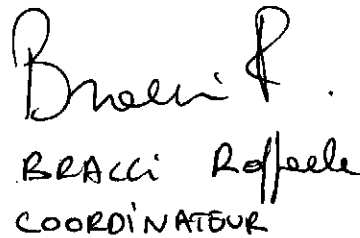 Bracci R.
BRACCi Raffaele
COORDiNATEUR